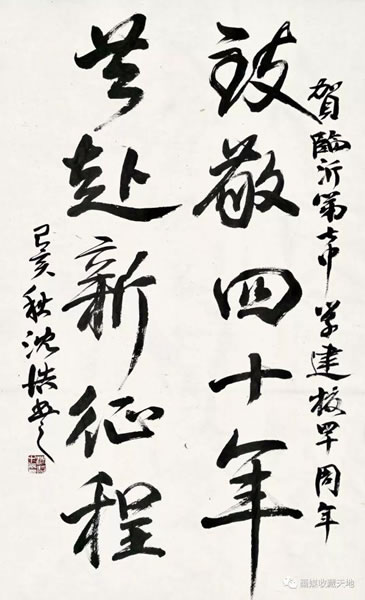 賀臨沂第七中学建校四十周年
致敬四十年
共赴新征程
己亥秋沈浩书之
收藏天地